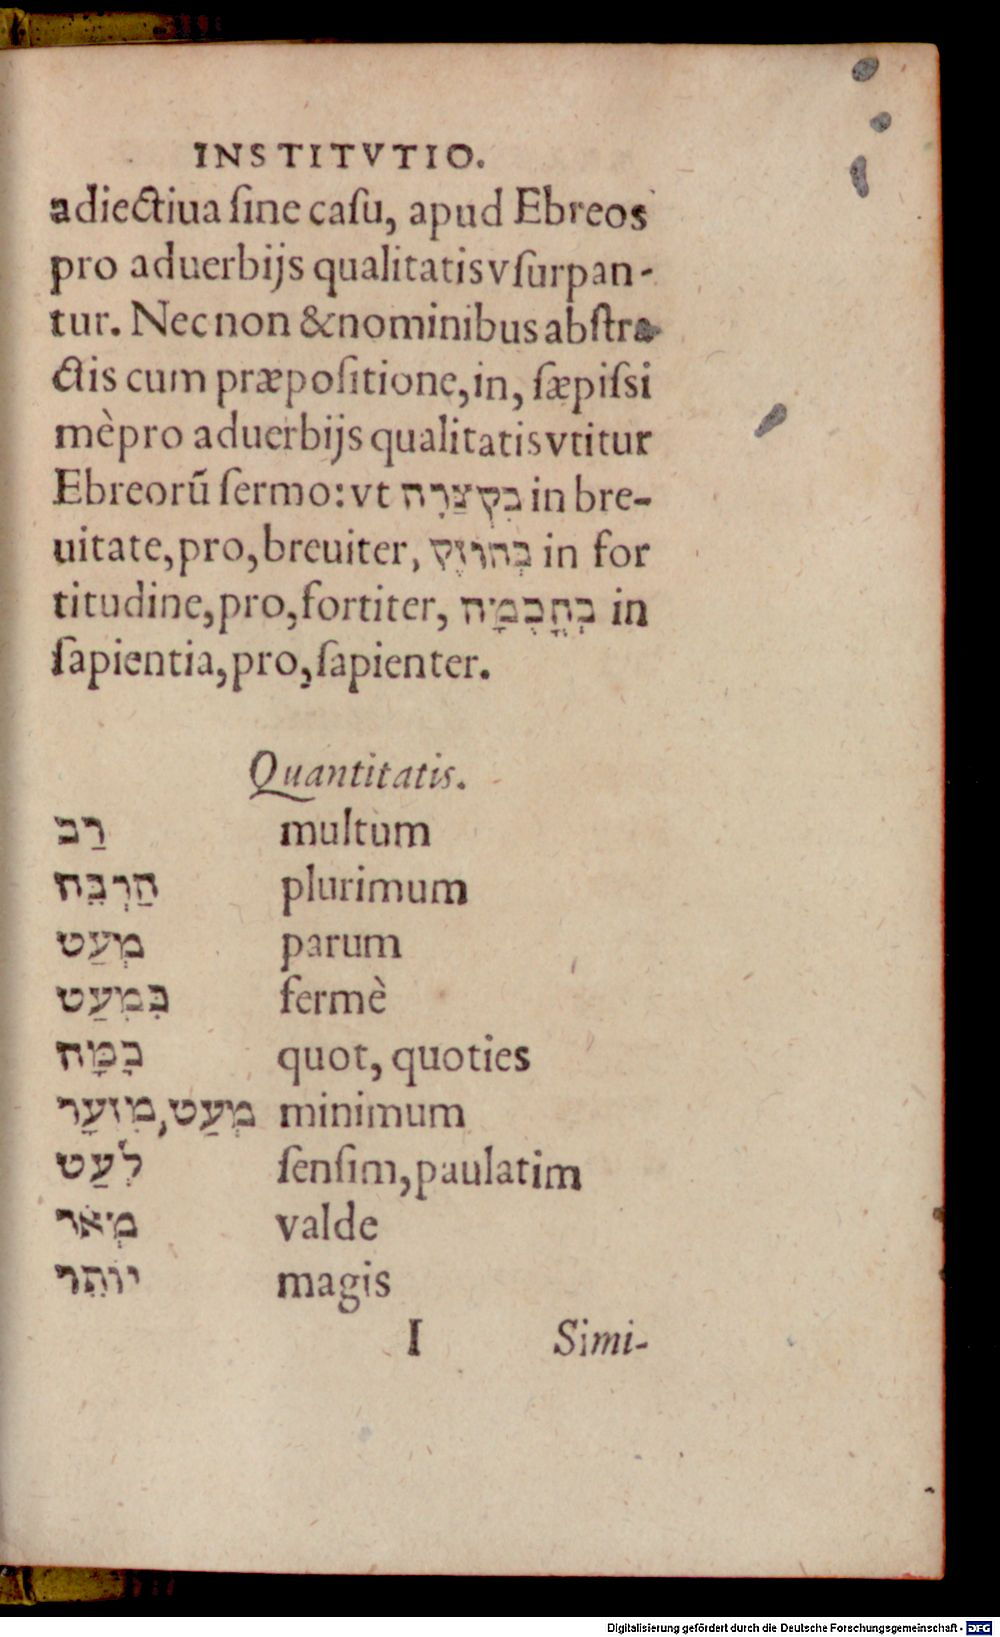 INSTITVTIO.
adiectiua ſine caſu, apud Ebreos
pro aduerbijs qualitatis vſurpan-
tur. Nec non & nominibus abſtra
ctis cum præpoſitione, in, ſæpiſsi
mè pro aduerbijs qualitatis vtitur
Ebreorū ſermo: vt בִקְצַרָה in bre-
uitate, pro, breuiter, בְחוֹזֶק in for
titudine, pro, fortiter, בְחָכְמָה in
ſapientia, pro, ſapienter.
Quantitatis.
רַב multum
הַרְבֵּה plurimum
מְעַט parum
כִּמְעַט fermè
כַמָּה quot, quoties
מְעַט, מִזְעָר minimum
לְעַט ſenſim, paulatim
מְאֹד valde
יוֹתֵר magis
I Simi-
Digitalisierung gefördert durch die Deutsche Forschungsgemeinschaft - DFG